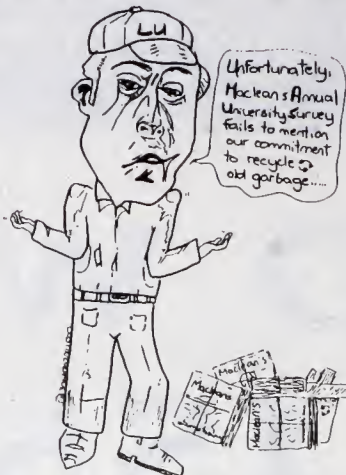 LU
Unfortunately,
Maclean's Annual
University Survey
fails to mention
our commitment
to recycle
old garbage.....
Maclean's
Maclean's
Maclean's